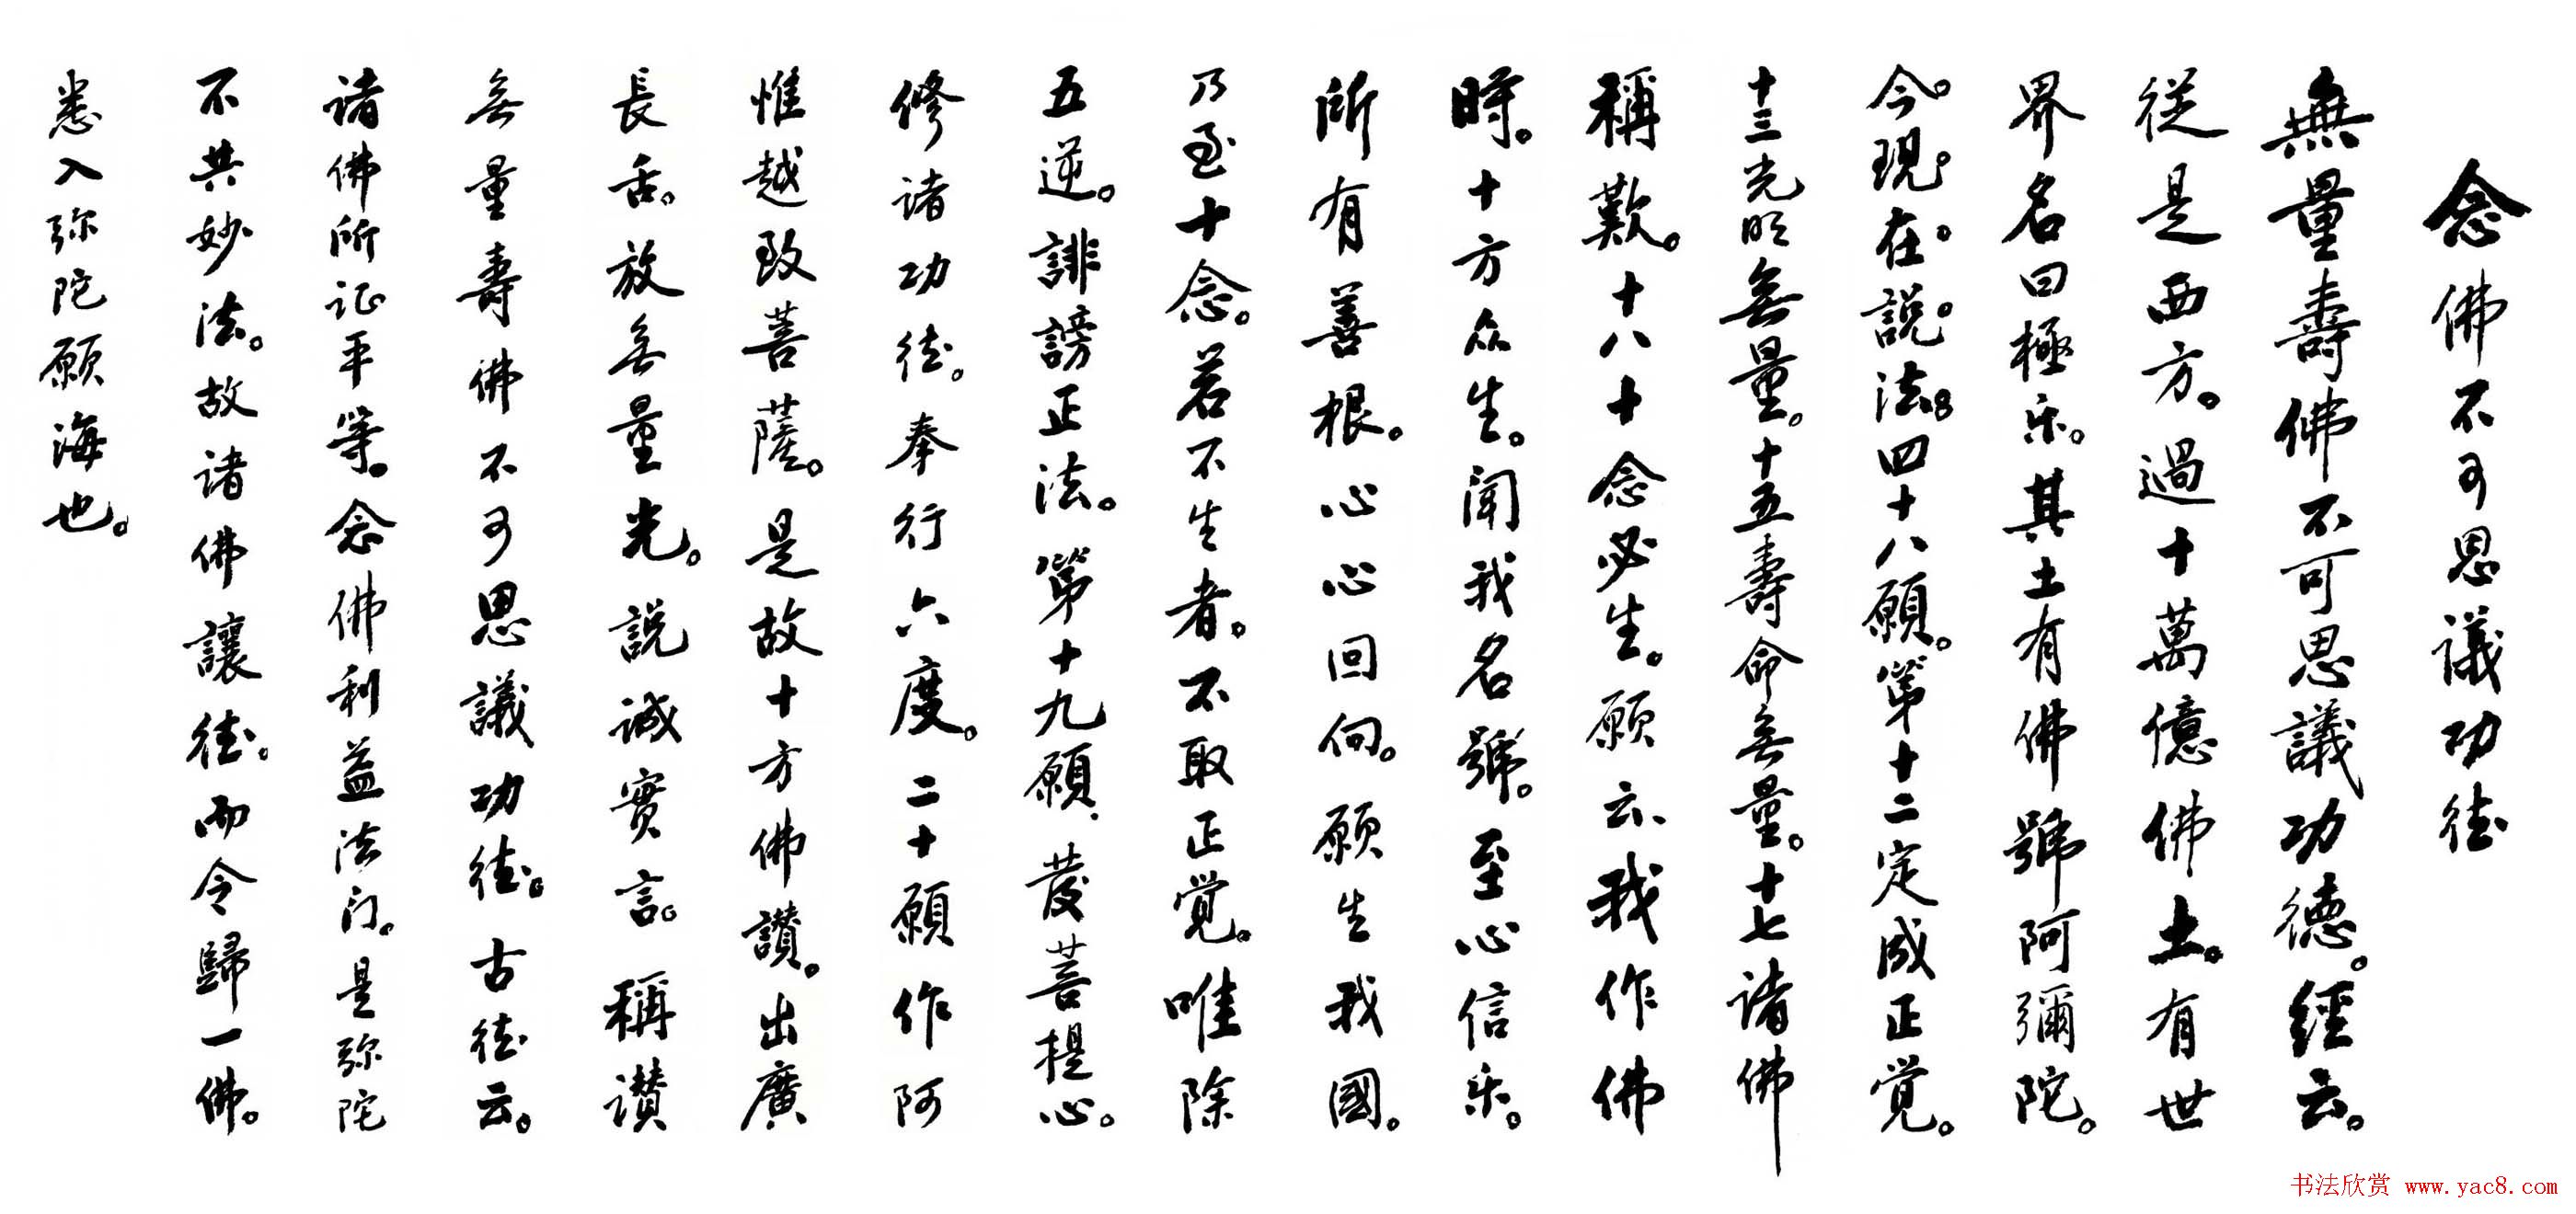 念佛不可思議功德
無量壽佛不可思議功德。經云。
從是西方。過十萬億佛土。有世
界名曰極乐。其土有佛號阿彌陀。
今。現。在。說。法。四十八願。第十二定成正觉。
十三光明無量。十五壽命無量。十七諸佛
稱歎。十八十念必生。願云、我作佛
時。十方众生。聞我名號。至心信乐。
所有善根。心心回向。願生我國。
乃至十念。若不生者。不取正觉。唯除
五逆。誹謗正法。第十九願、發菩提心。
修诸功德。奉行六度。二十願作阿
惟越致菩薩。是故十方佛讃。出廣
長舌。放無量光。說誠實言。稱讃
無量壽佛不可思議功德。古德云。
诸佛所证平等。念佛利益法门。是弥陀
不共妙法。故诸佛讓德。而令歸一佛。
悉入弥陀願海也。
书法欣赏 www.yac8.com